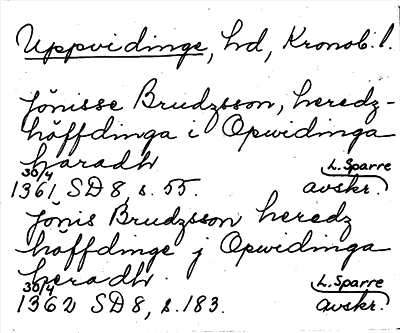 Uppvidinge, hd, Kronob. l.
Jönisse Brudzsson, heredz-
höffdinga i Opwidinga
haradh
30/4 L. Sparre
1361 SD 8, s. 55. avskr.
Jönis Brudzsson heredz
höffdinge j Opwidinga
heradh.
30/4 L. Sparre
1362 SD 8, s. 183. avskr.